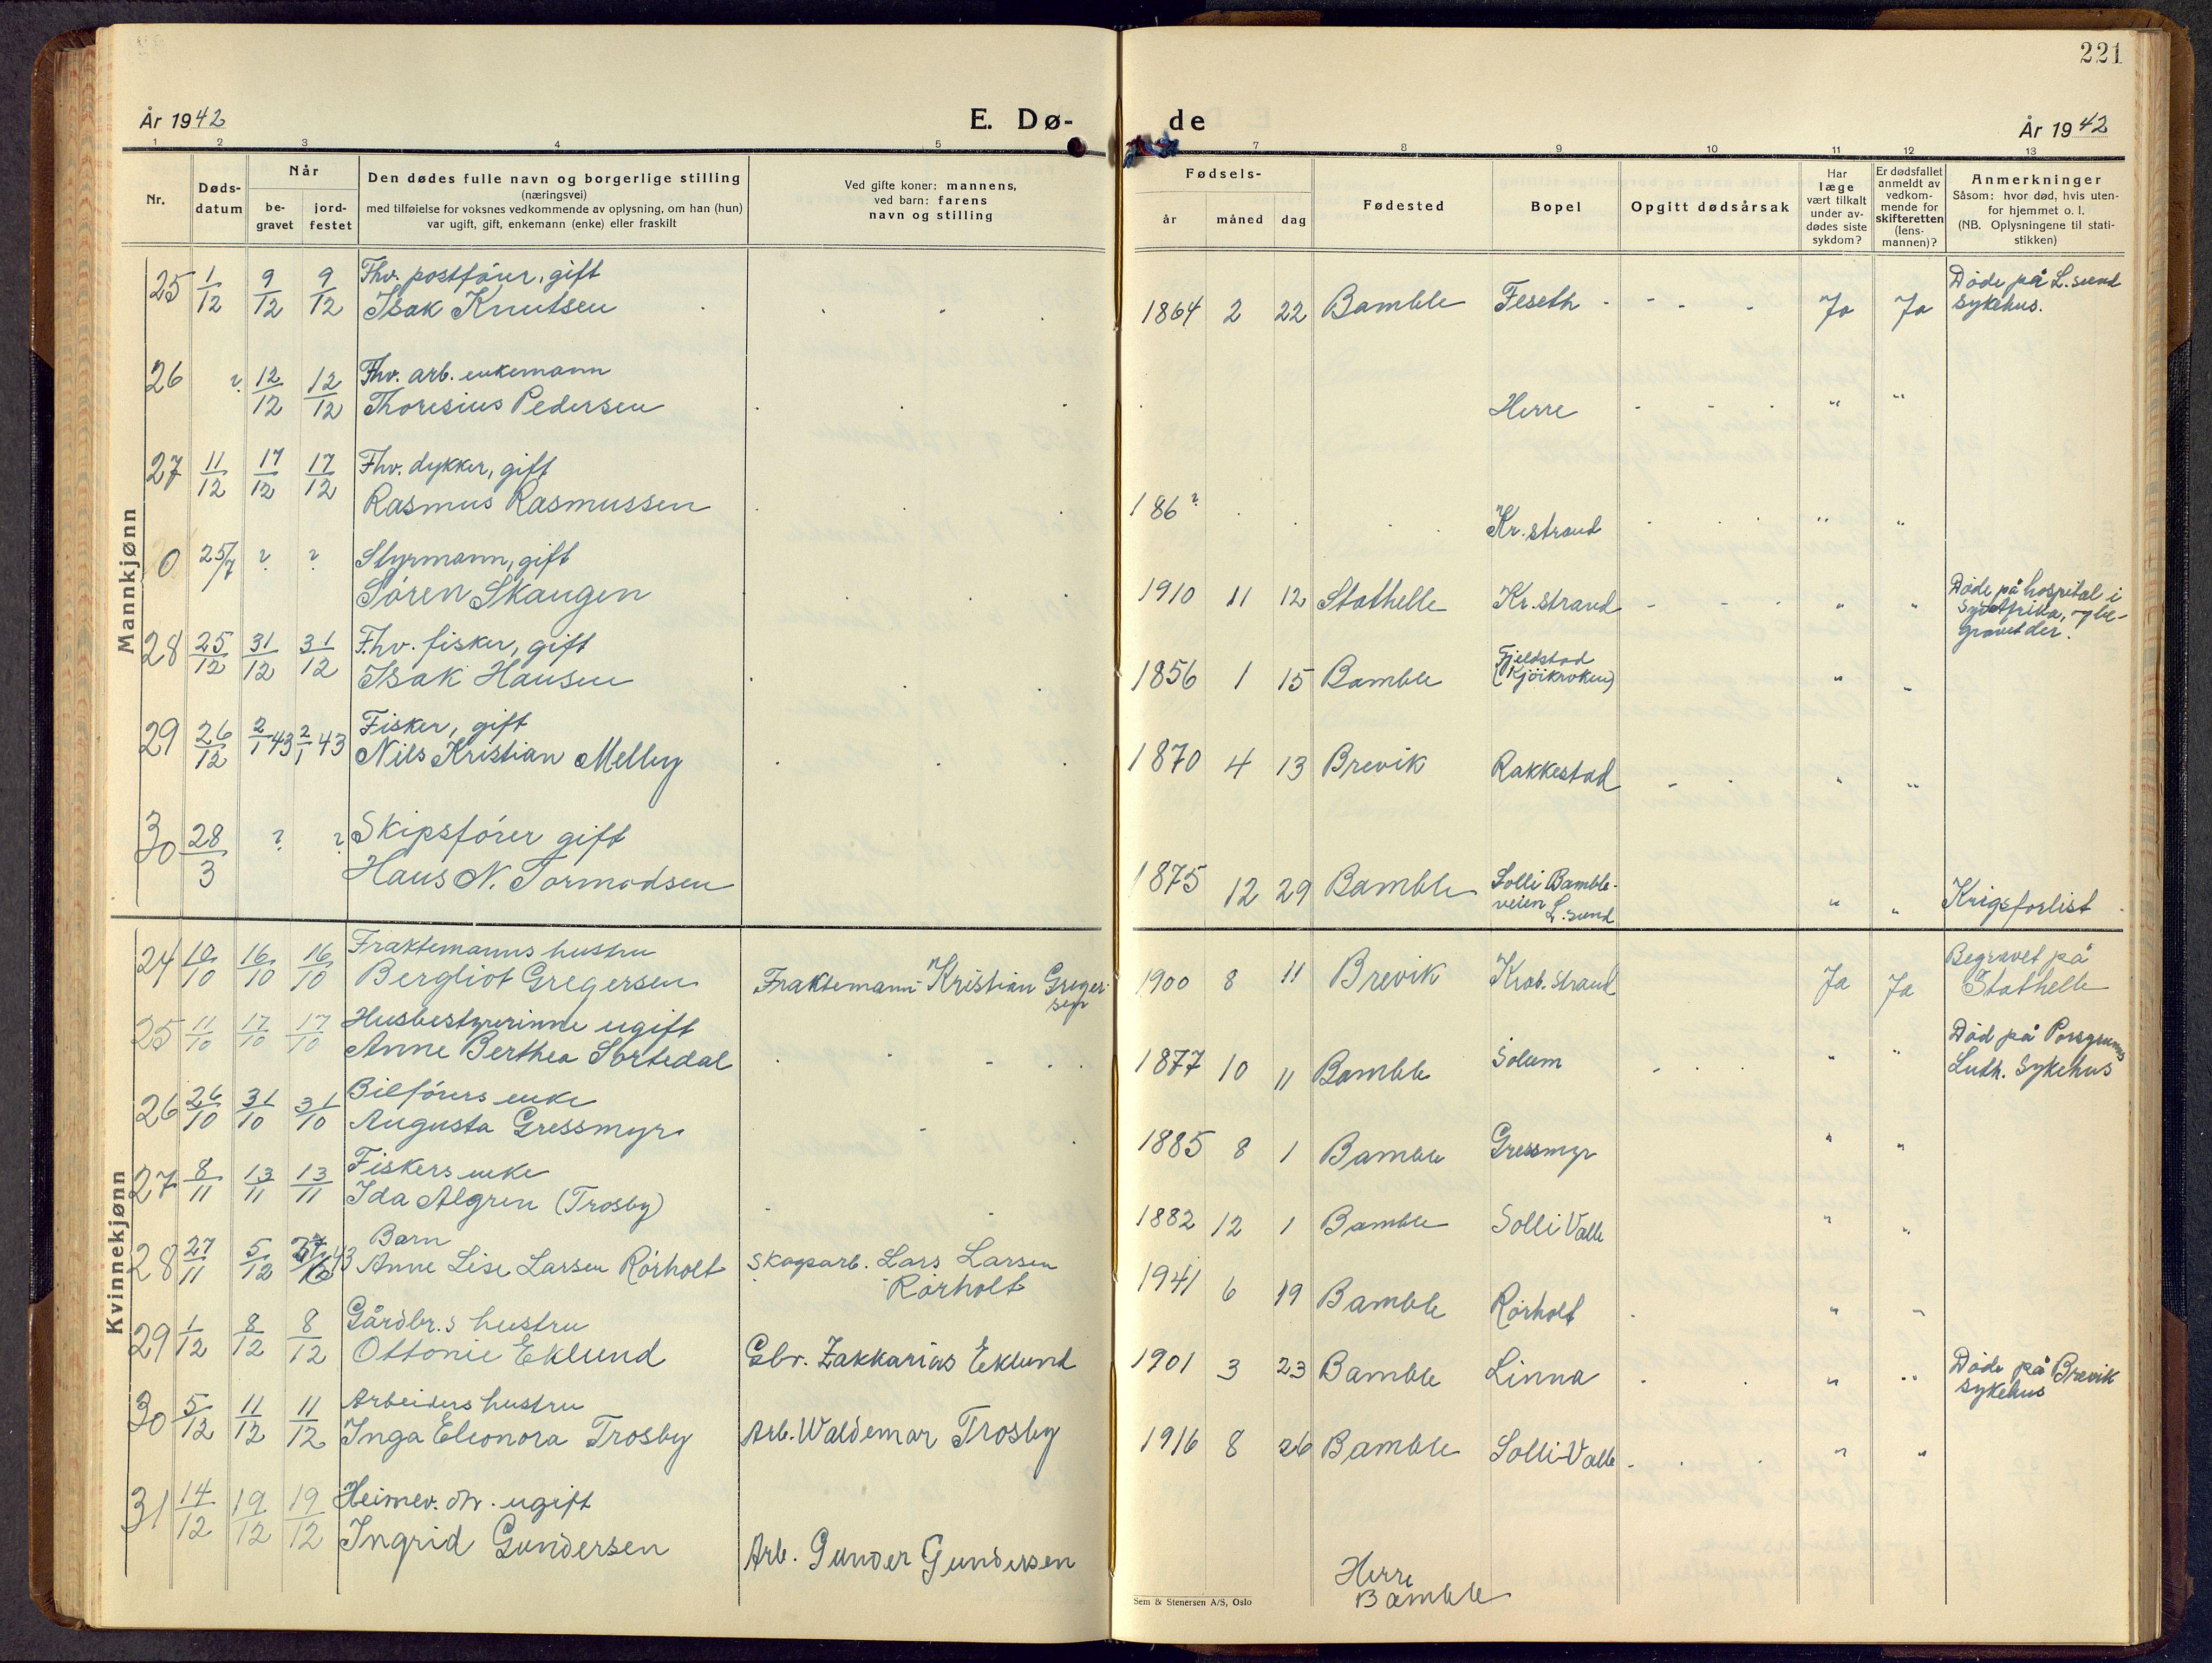 221
År 1942
E. Dø-
de
År 1942
1 2 3 4 5
7 8 9 10 11 12 13
Nr.
Døds-
datum
Når
be-
gravet
jord-
festet
Den dødes fulle navn og borgerlige stilling
(næringsvei)
med tilføielse for voksnes vedkommende av oplysning, om han (hun)
var ugift, gift, enkemann (enke) eller fraskilt
Ved gifte koner: mannens,
ved barn: farens
navn og stilling
Fødsels-
år måned dag
Fødested
Bopel
Opgitt dødsårsak
Har
læge
vært tilkalt
under av-
dødes siste
sykdom?
Er dødsfallet
anmeldt av
vedkom-
mende for
skifteretten
(lens-
mannen)?
Anmerkninger
Såsom: hvor død, hvis uten-
for hjemmet o. l.
(NB. Oplysningene til stati-
stikken)
Mannkjønn
25 1/12 9/12 9/12 Fhv. postfører, gift
Isak Knutsen
1864 2 22 Bamble Feseth Ja Ja
Døde på L.sund
sykehus.
26 ? 12/12 12/12 Fhv. arb. enkemann
Thoresius Pedersen
Herre " "
27 11/12 17/12 17/12 Fhv. dykker, gift
Rasmus Rasmussen
186? Kr.strand " "
0 25/7 ? ? Styrmann, gift
Søren Skaugen
1910 11 12 Stathelle Kr.strand " "
Døde på hospital i
Sydafrika, og be-
gravet der.
28 25/12 31/12 31/12 Fhv. fisker, gift
Isak Hansen
1856 1 15 Bamble Fjeldstad
(Kjøikroken) " "
29 26/12 2/1 43 2/1 43 Fisker, gift
Nils Kristian Melby
1870 4 13 Brevik Rakkestad " "
30 28/3 ? ? Skipsfører gift
Hans N. Tormodsen
1875 12 29 Bamble Solli Bamble-
veien
L.sund " " Krigsforlist
Kvinnekjønn
24 10/10 16/10 16/10 Fraktemanns hustru
Bergliot Gregersen Fraktemann Kristian Greger-
sen
1900 8 11 Brevik Krob.strand Ja Ja
Begravet på
Stathelle
25 11/10 17/10 17/10 Husbestyrerinne ugift
Anne Berthea Sortedal
1877 10 11 Bamble Solum " "
Død på Porsgrunns
Luth. Sykehus
26 26/10 31/10 31/10 Bilførers enke
Augusta Gressmyr
1885 8 1 Bamble Gressmyr " "
27 8/11 13/11 13/11 Fiskers enke
Ida Algren (Trosby)
1882 12 1 Bamble Solli Valle " "
28 27/11 5/12 43 Barn
Anne Lise Larsen Rørholt Skogsarb. Lars Larsen
Rørholt
1941 6 19 Bamble Rørholt " "
29 1/12 8/12 8/12 Gårdbr.s hustru
Ottonie Eklund Gbr. Zakkarias Eklund
1901 3 23 Bamble Linna " "
Døde på Brevik
sykehus
30 5/12 11/12 11/12 Arbeiders hustru
Inga Eleonora Trosby Arb. Waldemar Trosby
1916 8 26 Bamble Solli-Valle " "
31 14/12 19/12 19/12 Heimev. dtr. ugift
Ingrid Gundersen Arb. Gunder Gundersen
Herre
Bamble
Sem & Stenersen A/S, Oslo